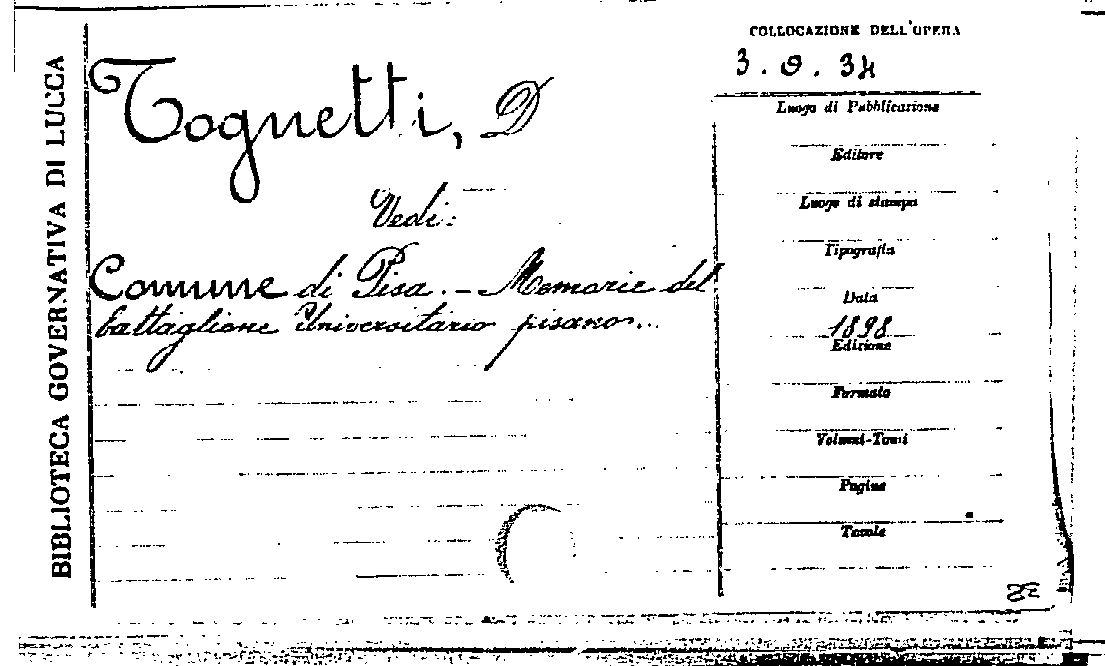 BIBLIOTECA GOVERNATIVA DI LUCCA
Tognetti, D
Vedi:
Comune di Pisa. - Memorie del
battaglione Universitario pisano...
COLLOCAZIONE DELL'OPERA
Luogo di Pubblicazione
Editore
Luogo di stampa
Tipografia
Data
1898
Edizione
Formato
Volumi-Tomi
Pagine
Tavole